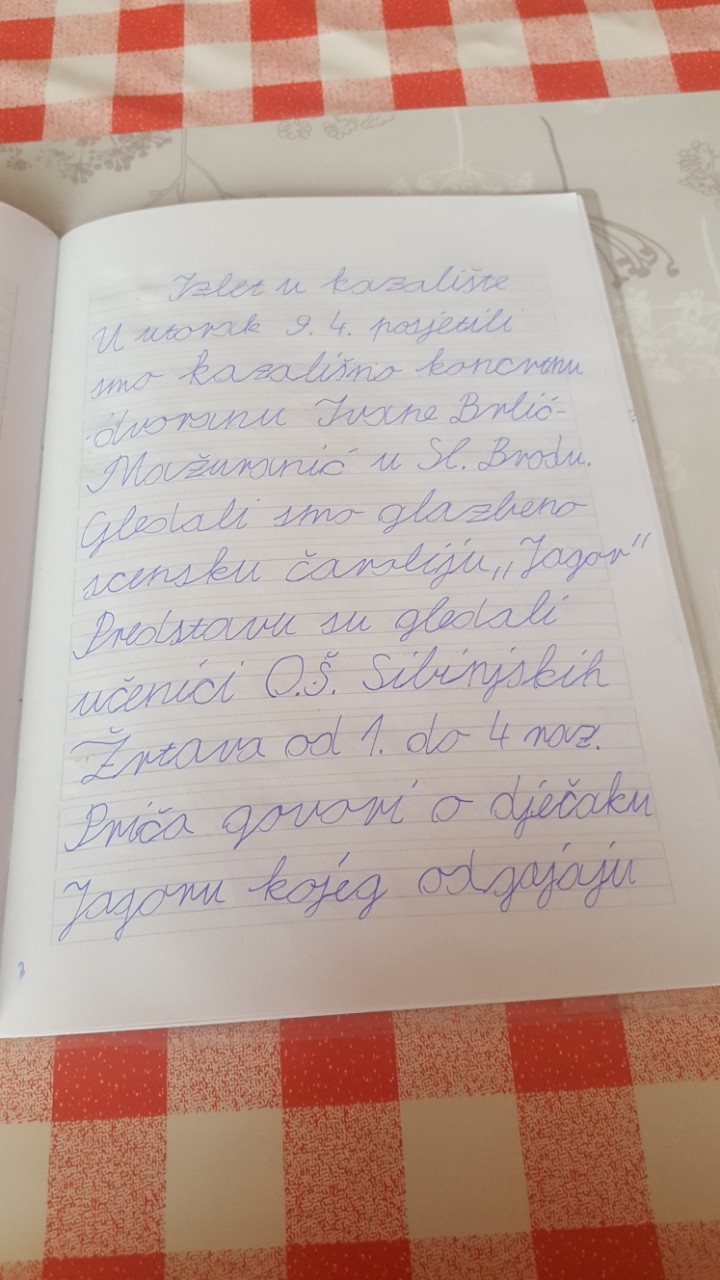 Izlet u kazalište
U utorak 9. 4. posjetili
smo kazališno koncertnu
dvoranu Ivane Brlić-
Mažuranić u Sl. Brodu.
Gledali smo glazbeno
scensku čaroliju „Jagor"
Predstavu su gledali
učenici O.Š. Sibinjskih
Žrtava od 1. do 4 raz.
Priča govori o dječaku
Jagoru kojeg odgajaju